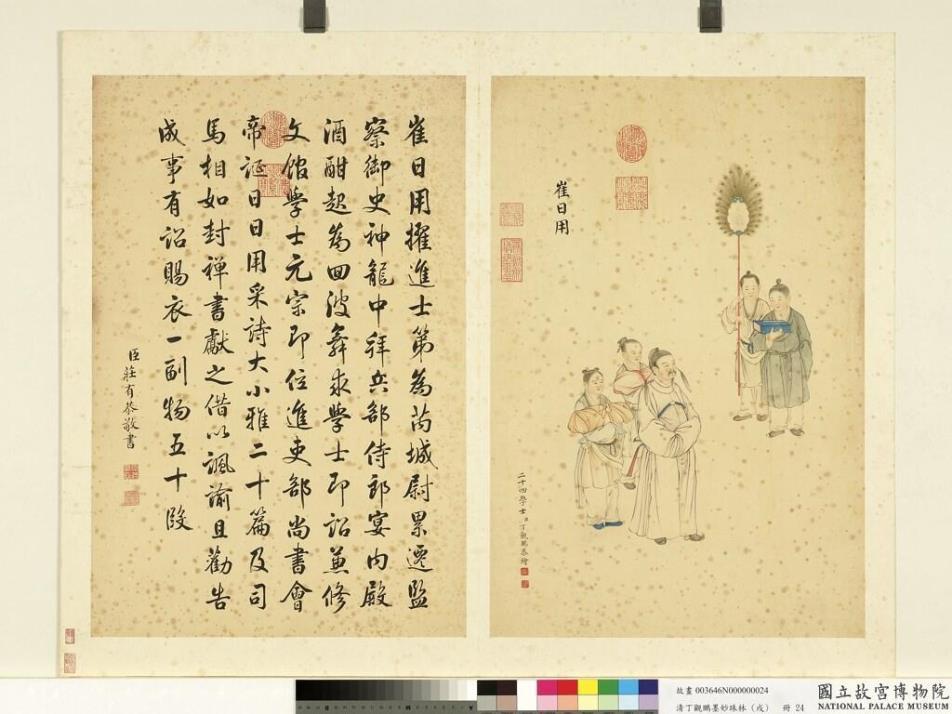 崔日用擢進士第為芮城尉累遷監
察御史神龍中拜兵部侍郎宴內殿
酒酣起為回波舞求學士即詔兼修
文館學士元宗即位進吏部尚書會
帝誕日日用采詩大小雅二十篇及司
馬相如封禪書獻之借以諷諭且勸告
成事有詔賜衣一副物五十段
臣莊有恭敬書
崔日用
二十四學士 臣丁觀鵬恭繪
故畫 003646N000000024
清丁觀鵬墨妙珠林(戌) 冊 24
國立故宮博物院
NATIONAL PALACE MUSEUM